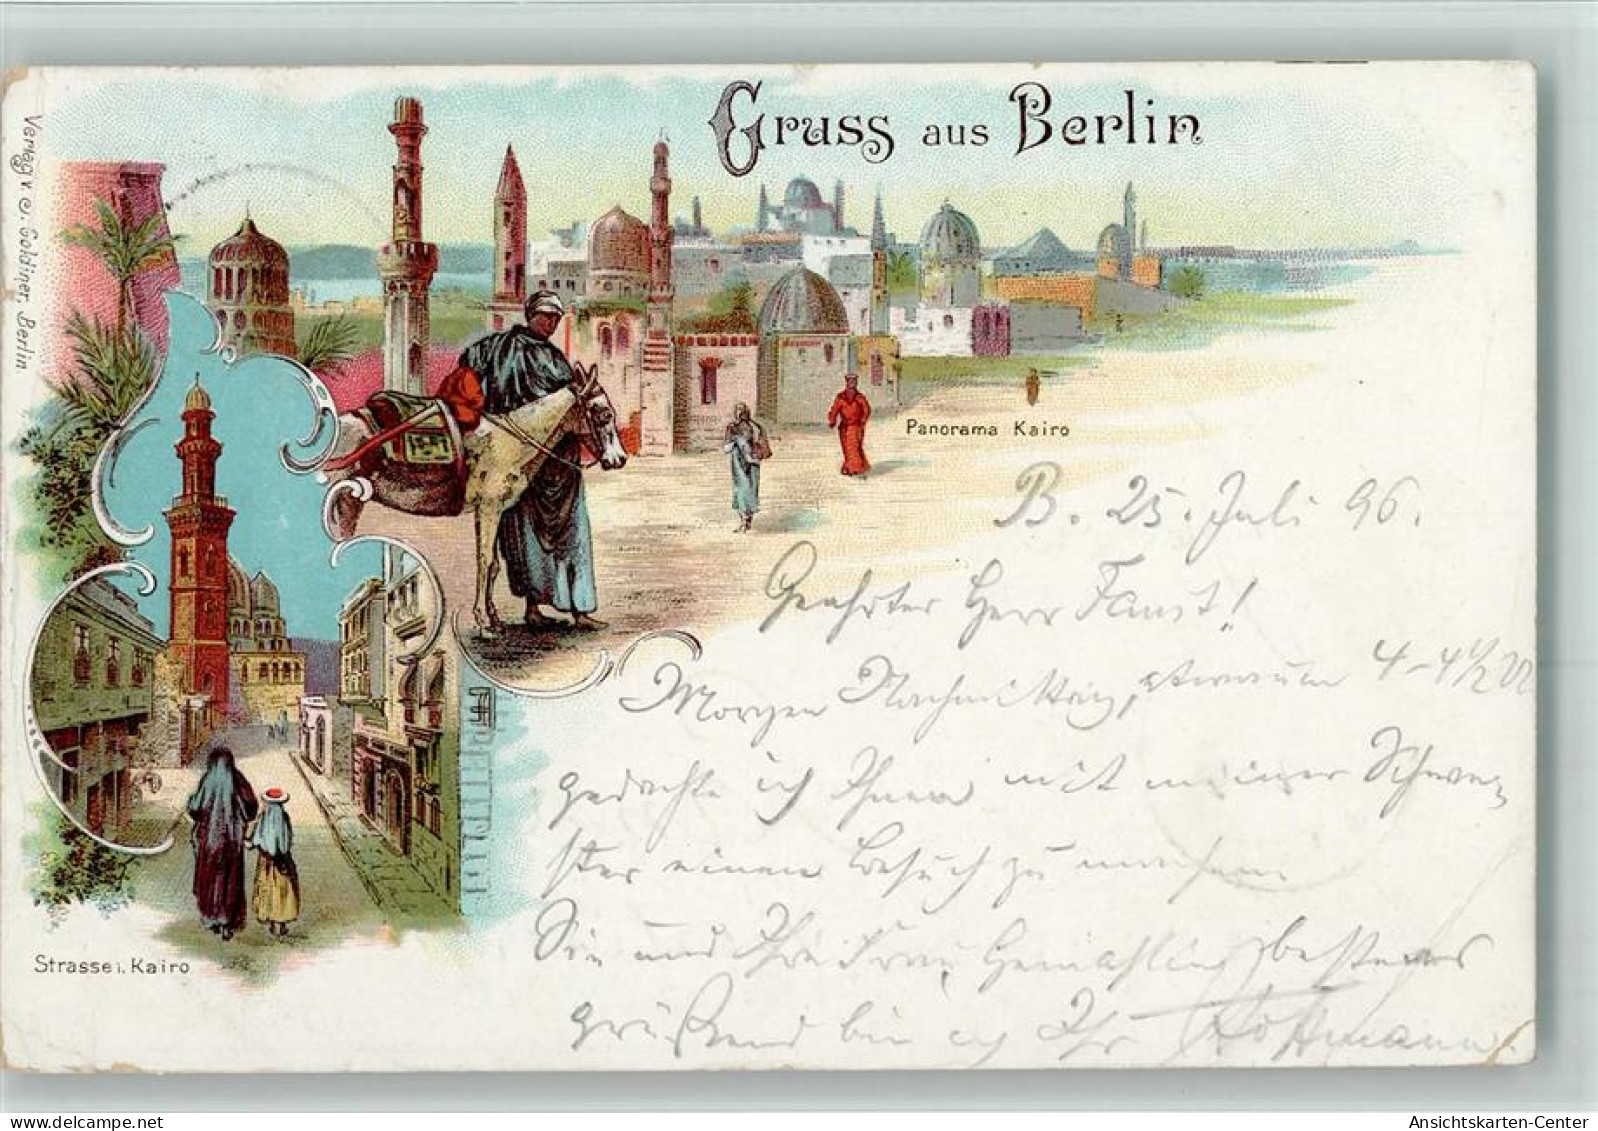 Gruss aus Berlin
Verlag v. J. Goldiner, Berlin.
Panorama Kairo
Strasse i. Kairo
B. 25. Juli 96.
Geehrter Herr Faust!
Morgen Nachmittag, 4-4 1/2
gedachte ich Ihnen mit meiner Schwe-
ster einen Besuch zu machen
Sie und Ihre Frau Gemahlin bestens
grüßend bin ich Ihr Hoffmann.
Ansichtskarten-Center